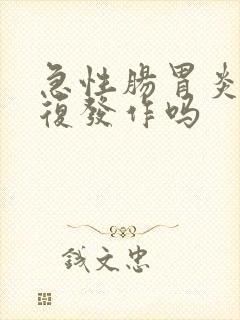 急性腸胃炎
復發作吗
錢文忠